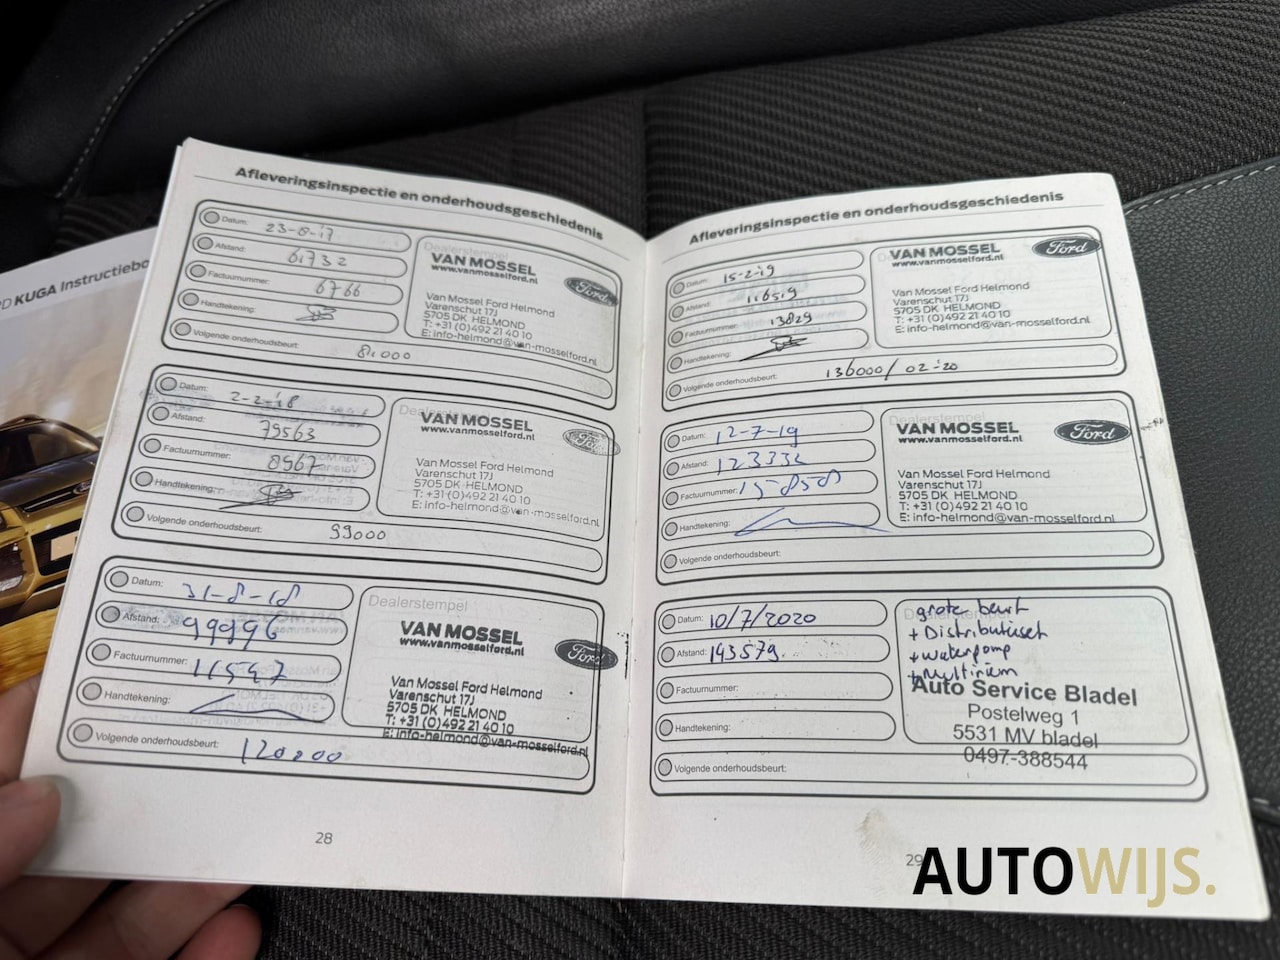 KUGA Instructiebo
Afleveringsinspectie en onderhoudsgeschiedenis
Datum: 23-8-17
Afstand: 61732
Factuurnummer: 6766
Handtekening:
Volgende onderhoudsbeurt: 81.000
Dealerstempel
VAN MOSSEL
www.vanmosselford.nl
Ford
Van Mossel Ford Helmond
Varenschut 17J
5705 DK HELMOND
T: +31 (0)492 21 40 10
E: info-helmond@van-mosselford.nl
Datum: 2-2-'18
Afstand: 79563
Factuurnummer: 8967
Handtekening:
Volgende onderhoudsbeurt: 99000
Dealerstempel
VAN MOSSEL
www.vanmosselford.nl
Ford
Van Mossel Ford Helmond
Varenschut 17J
5705 DK HELMOND
T: +31 (0)492 21 40 10
E: info-helmond@van-mosselford.nl
Datum: 31-8-18
Afstand: 99996
Factuurnummer: 11547
Handtekening:
Volgende onderhoudsbeurt: 120.000
Dealerstempel
VAN MOSSEL
www.vanmosselford.nl
Ford
Van Mossel Ford Helmond
Varenschut 17J
5705 DK HELMOND
T: +31 (0)492 21 40 10
E: info-helmond@van-mosselford.nl
28
Afleveringsinspectie en onderhoudsgeschiedenis
Datum: 15-2-19
Afstand: 116519
Factuurnummer: 13829
Handtekening:
Volgende onderhoudsbeurt: 136000/ 02-'20
VAN MOSSEL
www.vanmosselford.nl
Ford
Van Mossel Ford Helmond
Varenschut 17J
5705 DK HELMOND
T: +31 (0)492 21 40 10
E: info-helmond@van-mosselford.nl
Datum: 12-7-19
Afstand:
Factuurnummer: 15858
Handtekening:
Volgende onderhoudsbeurt:
Dealerstempel
VAN MOSSEL
www.vanmosselford.nl
Ford
Van Mossel Ford Helmond
Varenschut 17J
5705 DK HELMOND
T: +31 (0)492 21 40 10
E: info-helmond@van-mosselford.nl
Datum: 10/7/2020
Afstand: 143579
Factuurnummer:
Handtekening:
Volgende onderhoudsbeurt:
grote beurt
+ Distributieset
+ waterpomp
+ Multiriem
Auto Service Bladel
Postelweg 1
5531 MV bladel
0497-388544
29
AUTOWIJS.